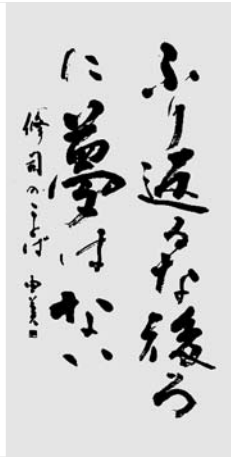 ふり返るな後ろ
に夢はない
修司のことば 由美